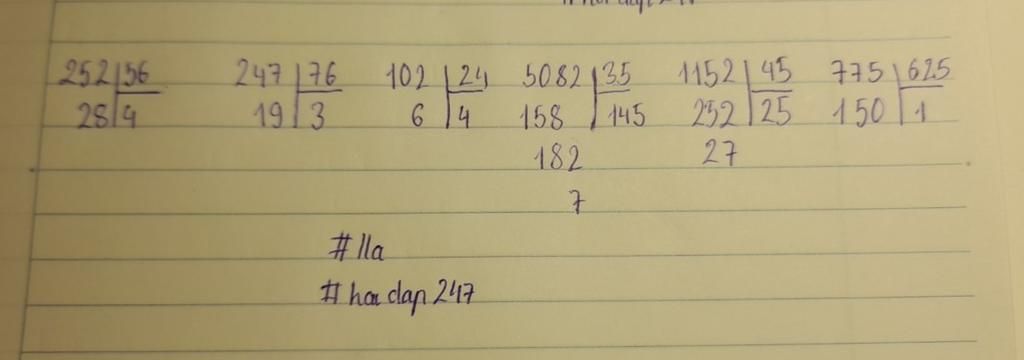 252 56 247 76 102 24 5082 35 1152 45 775 625
28 4 19 3 6 4 158 145 252 25 150 1
182 27
7
#lla
#hoidap247